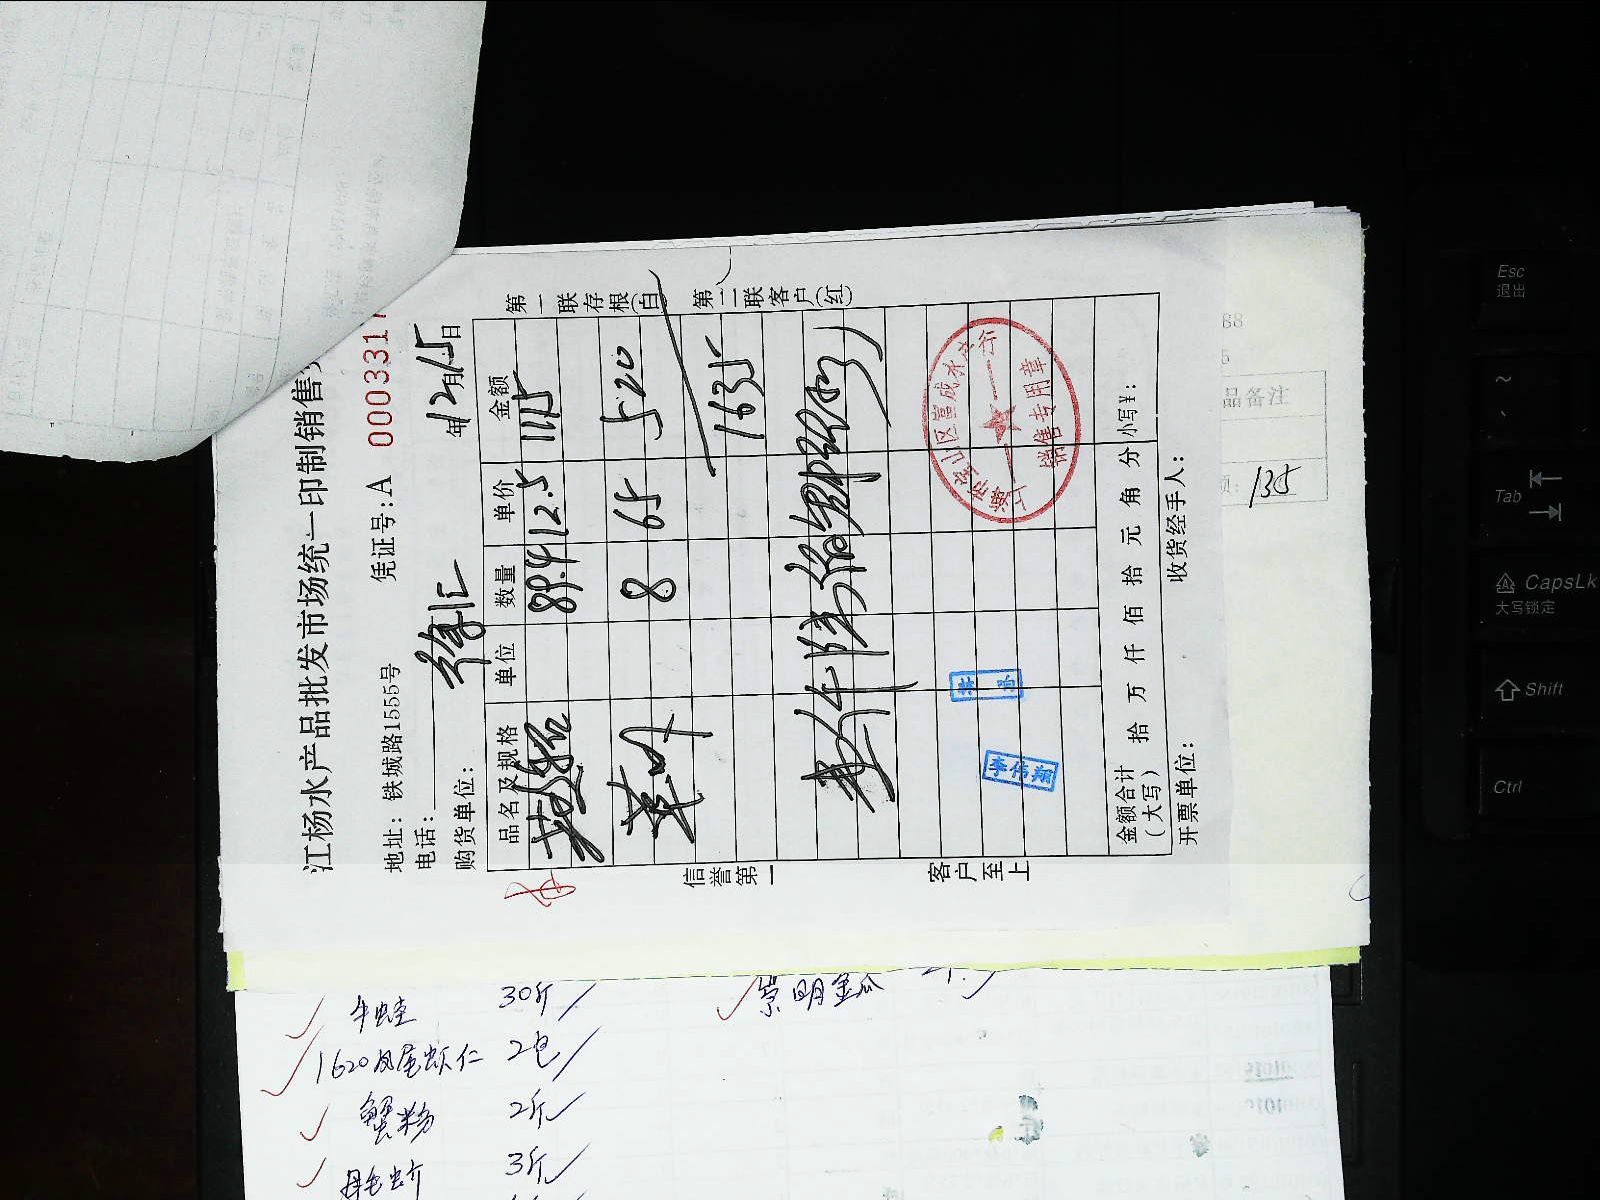 江杨水产品批发市场统一印制销售
地址：铁城路1555号
凭证号：A 000331
电话：
年12月15日
购货单位：徐汇
品名及规格 单位 数量 单价 金额
89.4 12.5 1115
8 65 520
1635
第一联存根（白）
第二联客户（红）
信誉第一
客户至上
销售专用章
李伟翔
金额合计（大写） 拾 万 仟 佰 拾 元 角 分 小写¥：
开票单位：
收货经手人：
品备注
135
牛蛙 30斤
1620凤尾虾仁 2包
蟹粉 2斤
3斤
崇明金瓜
Esc
退出
Tab
CapsLk
大写锁定
Shift
Ctrl